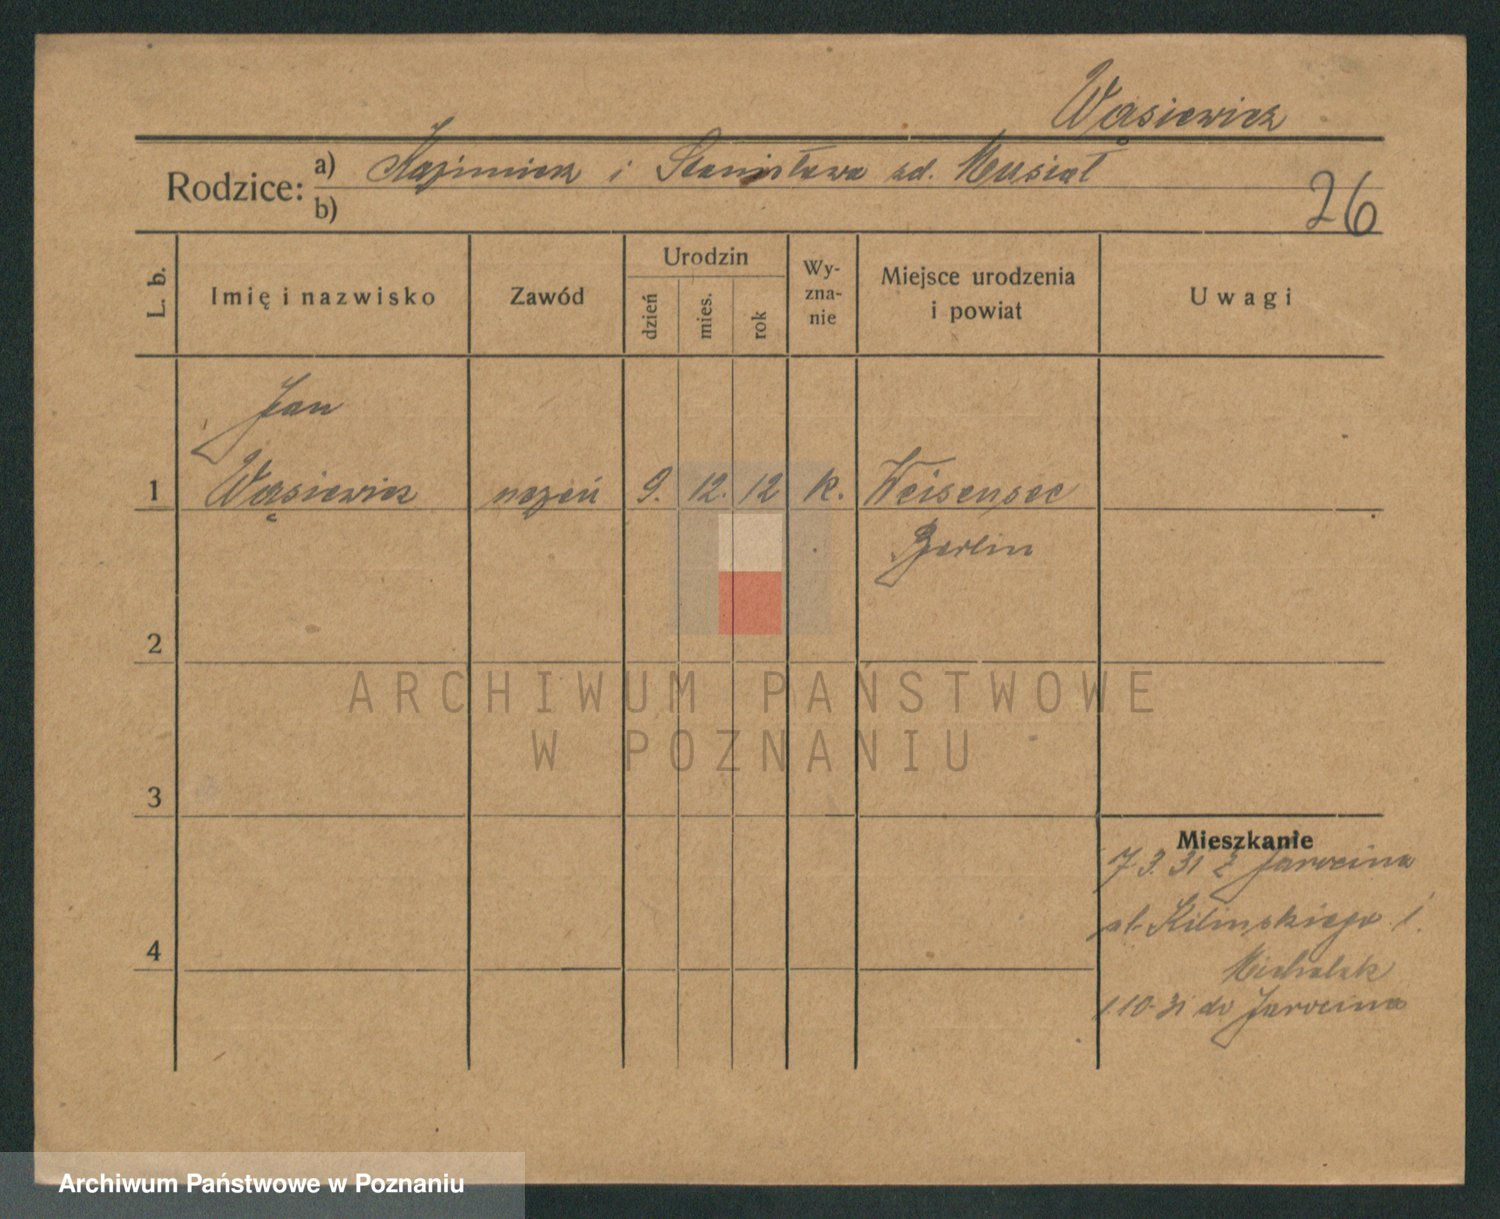 Wąsiewicz
Rodzice: a) Kazimierz i Stanisława zd. Musiał
b)
26
L. b.
Imię i nazwisko
Zawód
Urodzin
dzień
mies.
rok
Wy-
zna-
nie
Miejsce urodzenia
i powiat
Uwagi
Jan
1 Wąsiewicz uczeń 9. 12. 12 k. Weisensee
Berlin
2
ARCHIWUM PAŃSTWOWE
W POZNANIU
3
Mieszkanie
7.3.31 z Jarocina
ul. Kilinskiego 1.
Michalak
4
1.10.31 do Jarocina
Archiwum Państwowe w Poznaniu